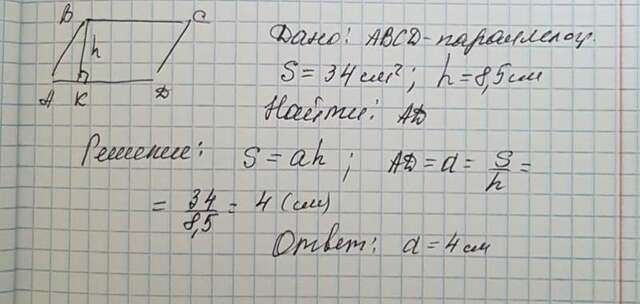 B C
h
A K D
Дано: ABCD - параллелог.
S = 34 см²; h = 8,5 см
Найти: AD
Решение: S = ah ; AD = a = S/h =
= 34/8,5 = 4 (см)
Ответ: a = 4 см